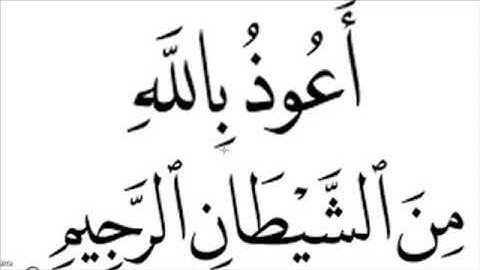 أَعُوذُ بِاللَّهِ
مِنَ ٱلشَّيْطَانِ ٱلرَّجِيمِ